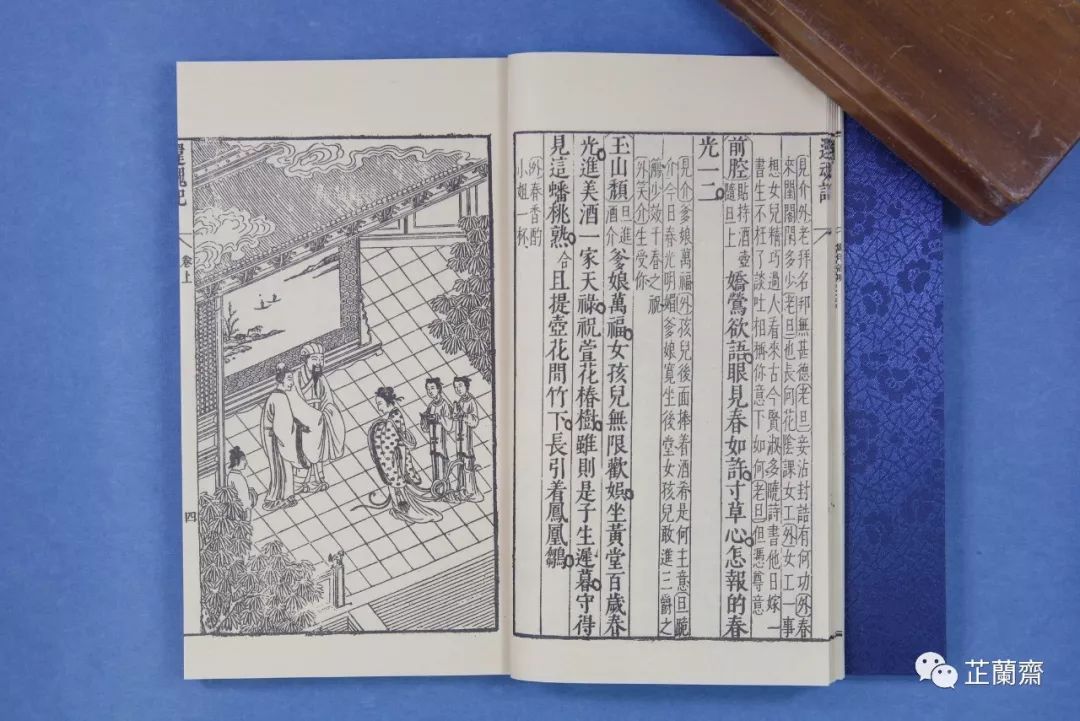 還魂記
見介外老拜名邦無甚德老旦妾沾封誥有何功外春
來閨閣閒多少老旦也長向花陰課女工外女工一事
想女兒精巧過人看來古今賢淑多曉詩書他日嫁一
書生不枉了談吐相稱你意下如何老旦但憑尊意
前腔貼持酒壺隨旦上嬌鶯欲語眼見春如許寸草心怎報的春
光一二
見介爹娘萬福外孩兒後面捧着酒肴是何主意旦跪
介今日春光明媚爹娘寬坐後堂女孩兒敢進三爵之
觴少效千春之祝
外笑介生受你
玉山頹旦進酒介爹娘萬福女孩兒無限歡娛坐黃堂百歲春
光進美酒一家天祿祝萱花椿樹雖則是子生遲暮守得
見這蟠桃熟合且提壺花間竹下長引着鳳凰雛
外春香酌
小姐一杯
還魂記
卷上
四
芷蘭齋